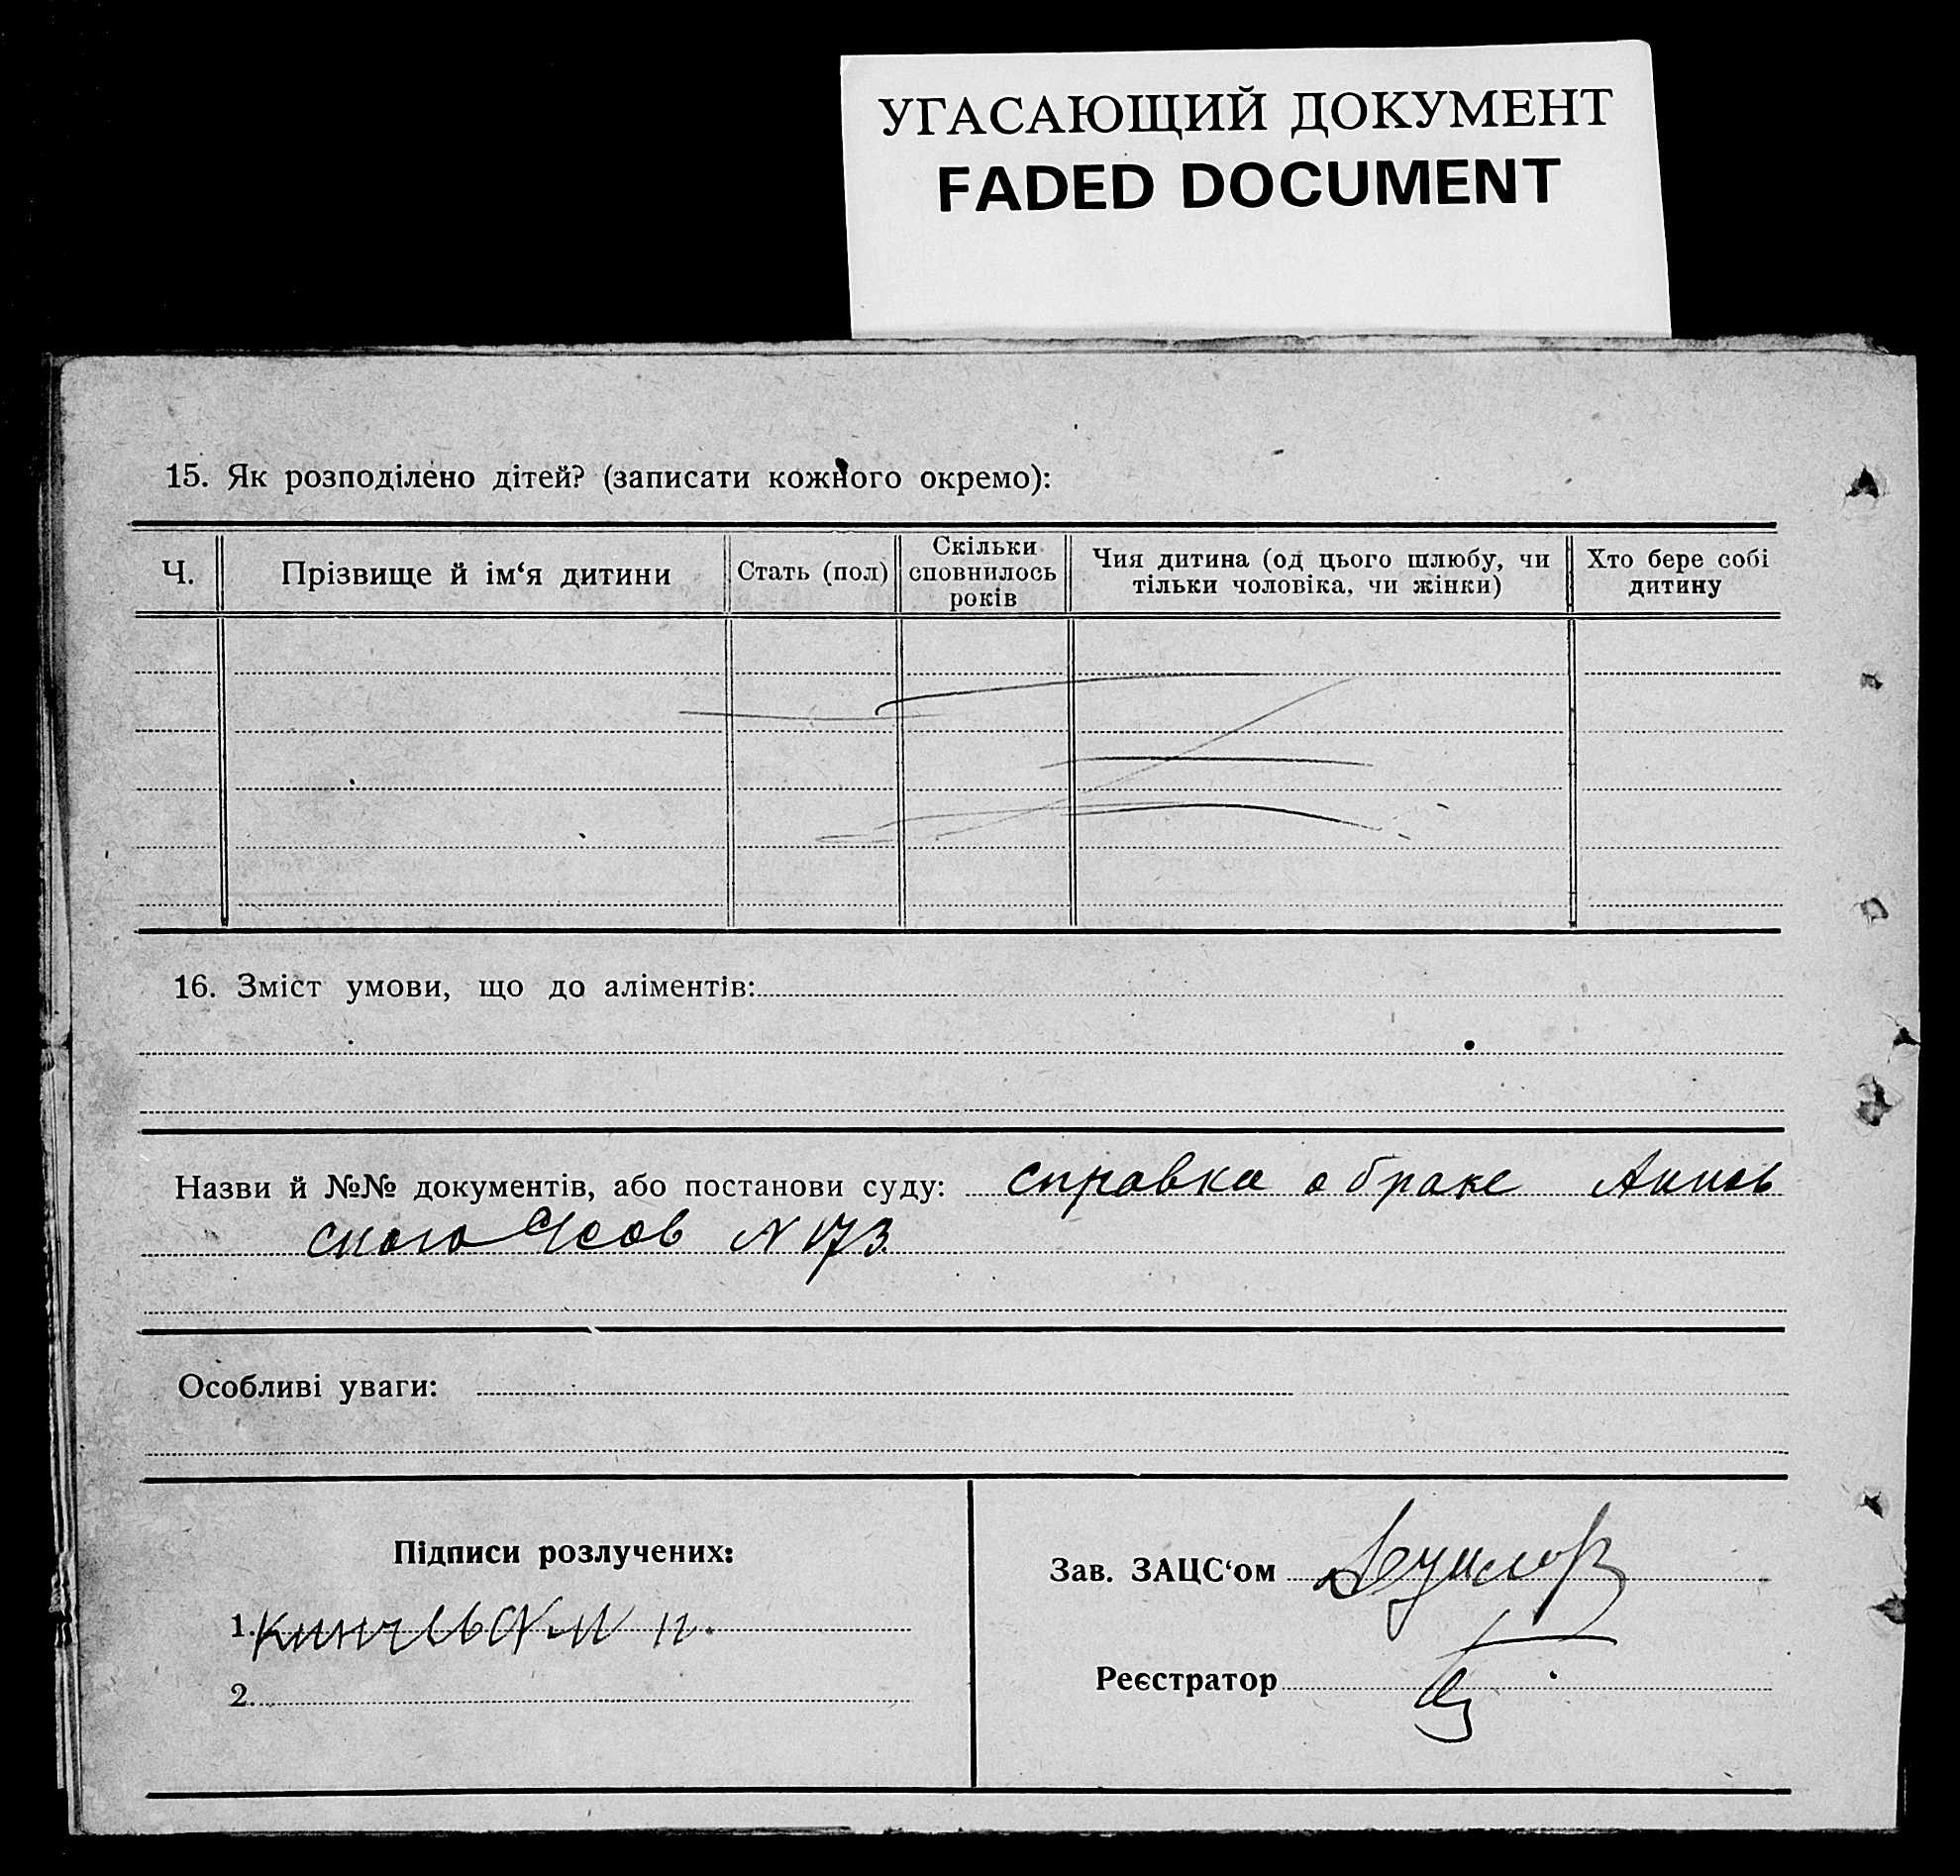 УГАСАЮЩИЙ ДОКУМЕНТ
FADED DOCUMENT
15. Як розподілено дітей? (записати кожного окремо):
Ч.
Прізвище й ім‘я дитини
Стать (пол)
Скільки
сповнилось
років
Чия дитина (од цього шлюбу, чи
тільки чоловіка, чи жінки)
Хто бере собі
дитину
16. Зміст умови, що до аліментів:
Назви й №№ документів, або постанови суду: справка о браке
ского N 173
Особливі уваги:
Підписи розлучених:
1.
2.
Зав. ЗАЦС‘ом
Реєстратор